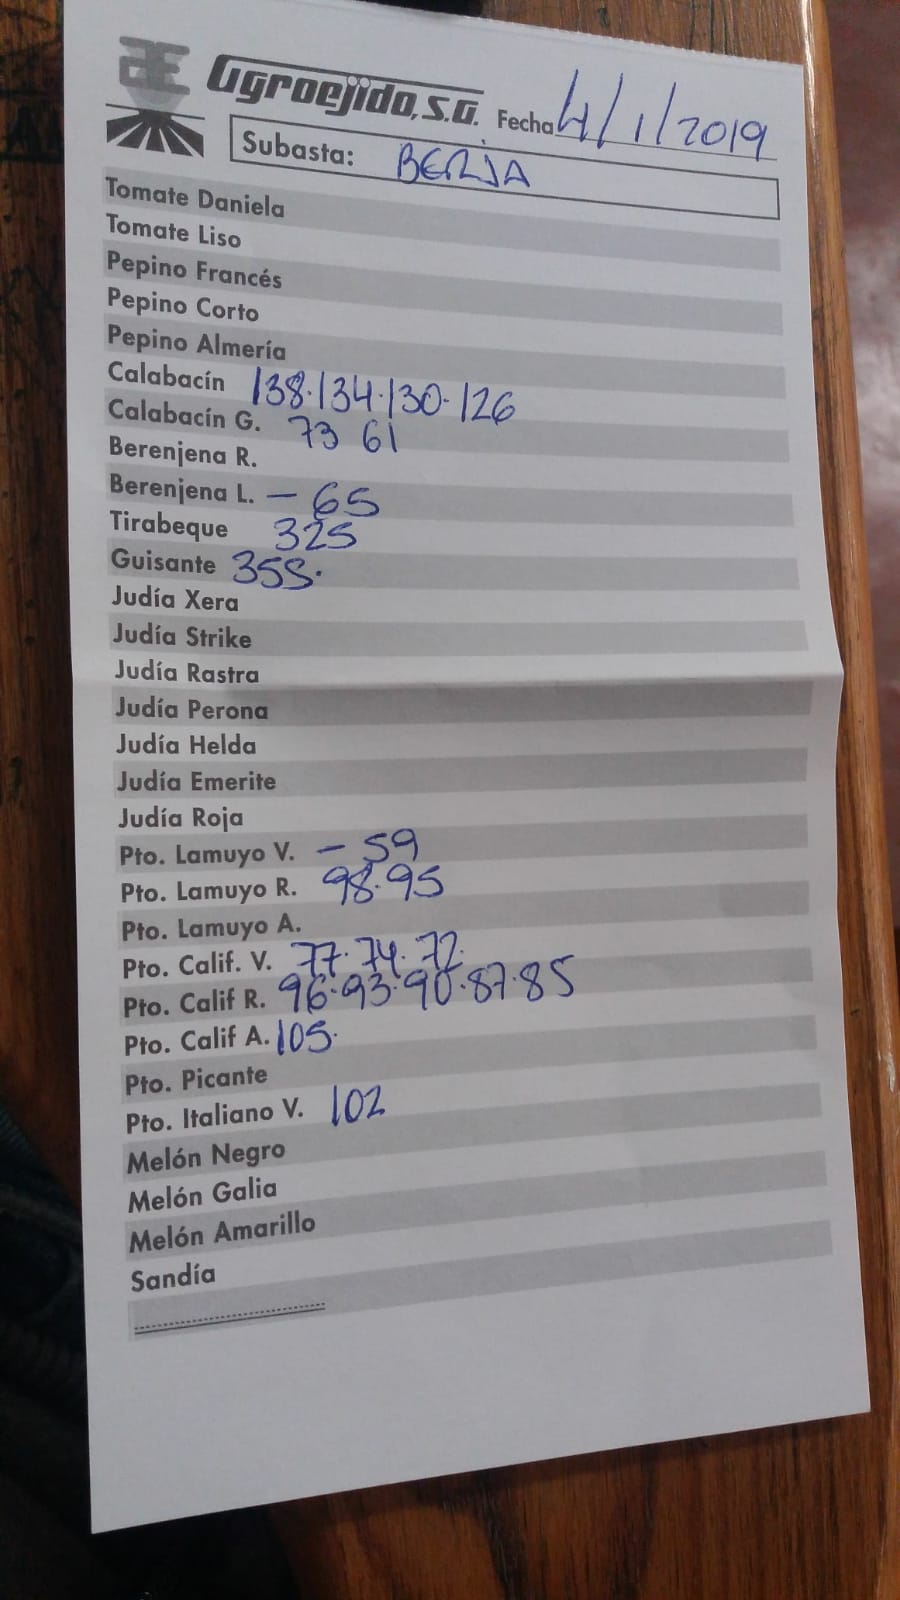 Agroejido, S.A. Fecha 4/1/2019
Subasta: BERJA
Tomate Daniela
Tomate Liso
Pepino Francés
Pepino Corto
Pepino Almería
Calabacín 138·134·130·126
Calabacín G. 73 61
Berenjena R.
Berenjena L. – 65
Tirabeque 325
Guisante 355·
Judía Xera
Judía Strike
Judía Rastra
Judía Perona
Judía Helda
Judía Emerite
Judía Roja
Pto. Lamuyo V. – 59
Pto. Lamuyo R. 98·95
Pto. Lamuyo A.
Pto. Calif. V. 77·74·72·
Pto. Calif R. 96·93·90·87·85
Pto. Calif A. 105·
Pto. Picante
Pto. Italiano V. 102
Melón Negro
Melón Galia
Melón Amarillo
Sandía